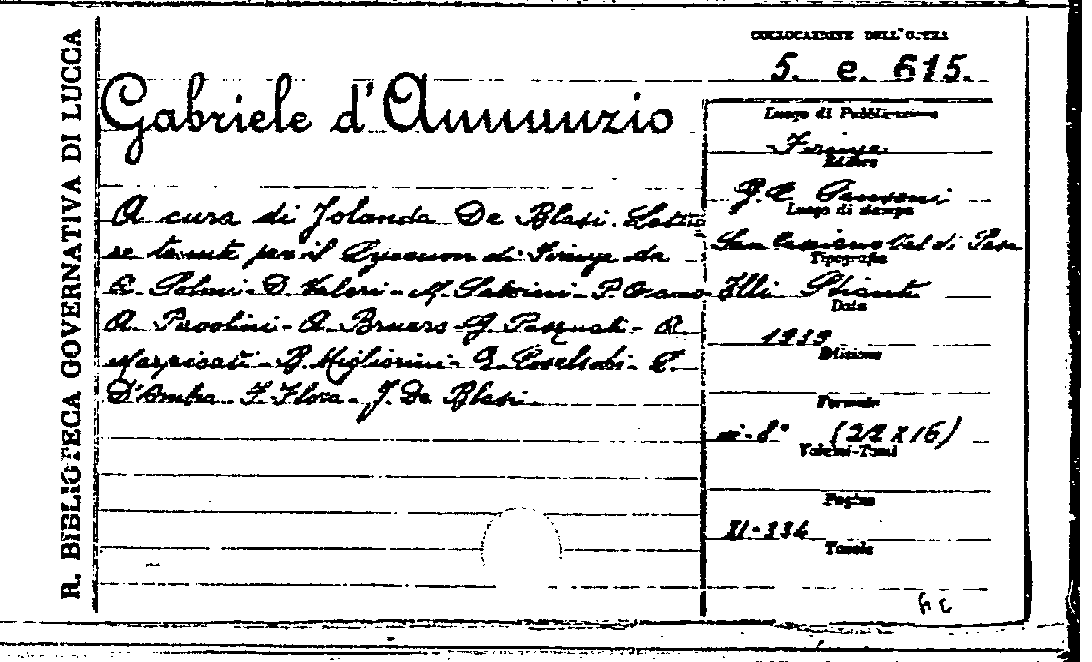 R. BIBLIOTECA GOVERNATIVA DI LUCCA
COLLOCAZIONE DELL'OPERA
5. e. 615.
Gabriele d'Annunzio
A cura di Jolanda De Blasi. Lettu
re tenute per il Lyceum di Firenze da
- D. Valeri - M. Saponi - P. Orano
A. Pavolini - A. Bruers - G. Pasquali - A
Marpicati - B. Migliorini - E. Coselschi - L.
D'Ambra - F. Flora - J. De Blasi.
Luogo di Pubblicazione
Firenze
Editore
G. C. Sansoni
Luogo di stampa
San Casciano Val di Pesa
Tipografia
F.lli Stianti
Data
1939
Edizione
Formato
in-8° (22 x 16)
Volumi-Tomi
Pagine
334
Tavole